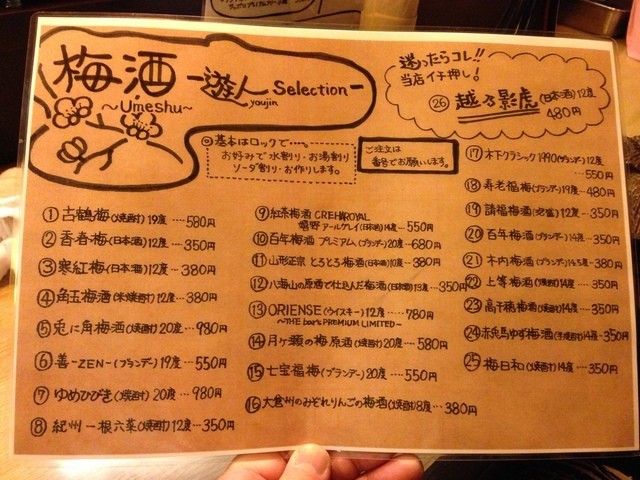 梅酒 -遊人 Selection-
~Umeshu~
youjin
迷ったらコレ!!
当店イチ押し!
㉖ 越乃影虎(日本酒)12度
480円
基本はロックで…。
お好みで水割り・お湯割り
ソーダ割り・お作りします。
ご注文は
番号でお願いします。
① 古鶴梅(焼酎)19度 ‥‥580円
② 香春梅(日本酒)12度 ‥‥350円
③ 寒紅梅(日本酒)12度 ‥‥380円
④ 角玉梅酒(米焼酎)12度‥‥380円
⑤ 兎に角梅酒(焼酎)20度‥‥980円
⑥ 善-ZEN-(ブランデー)19度‥‥550円
⑦ ゆめひびき(焼酎)20度‥‥980円
⑧ 紀州一根六菜(焼酎)12度‥‥350円
⑨ 紅茶梅酒 CREHAROYAL
嬉野アールグレイ(日本酒)14度‥‥550円
⑩ 百年梅酒 プレミアム(ブランデー)20度‥680円
⑪ 山形正宗 とろとろ梅酒(日本酒)10度‥380円
⑫ 八海山の原酒で仕込んだ梅酒(日本酒)13度‥350円
⑬ ORIENSE(ウイスキー)12度‥‥780円
~THE bar's PREMIUM LIMITED~
⑭ 月ヶ瀬の梅原酒(焼酎)20度‥‥580円
⑮ 七宝福梅(ブランデー)20度‥‥550円
⑯ 大倉州のみぞれりんごの梅酒(焼酎)8度‥380円
⑰ 木下クラシック1990(ブランデー)12度
‥‥550円
⑱ 寿老福梅(ブランデー)19度‥480円
⑲ 請福梅酒(泡盛)12度‥‥350円
⑳ 百年梅酒(ブランデー)14度‥350円
㉑ 木内梅酒(ブランデー)14.5度‥380円
㉒ 上等梅酒(焼酎)14度‥‥350円
㉓ 高千穂梅酒(焼酎)14度‥‥350円
㉔ 赤兎馬ゆず梅酒(芋焼酎)14度‥350円
㉕ 梅日和(焼酎)14度‥‥350円